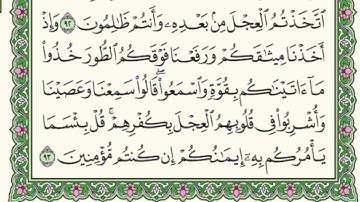 ٱتَّخَذْتُمُ ٱلْعِجْلَ مِنۢ بَعْدِهِۦ وَأَنتُمْ ظَٰلِمُونَ ٩٢ وَإِذْ
أَخَذْنَا مِيثَٰقَكُمْ وَرَفَعْنَا فَوْقَكُمُ ٱلطُّورَ خُذُوا۟
مَآ ءَاتَيْنَٰكُم بِقُوَّةٍ وَٱسْمَعُوا۟ ۖ قَالُوا۟ سَمِعْنَا وَعَصَيْنَا
وَأُشْرِبُوا۟ فِى قُلُوبِهِمُ ٱلْعِجْلَ بِكُفْرِهِمْ ۚ قُلْ بِئْسَمَا
يَأْمُرُكُم بِهِۦٓ إِيمَٰنُكُمْ إِن كُنتُم مُّؤْمِنِينَ ٩٣